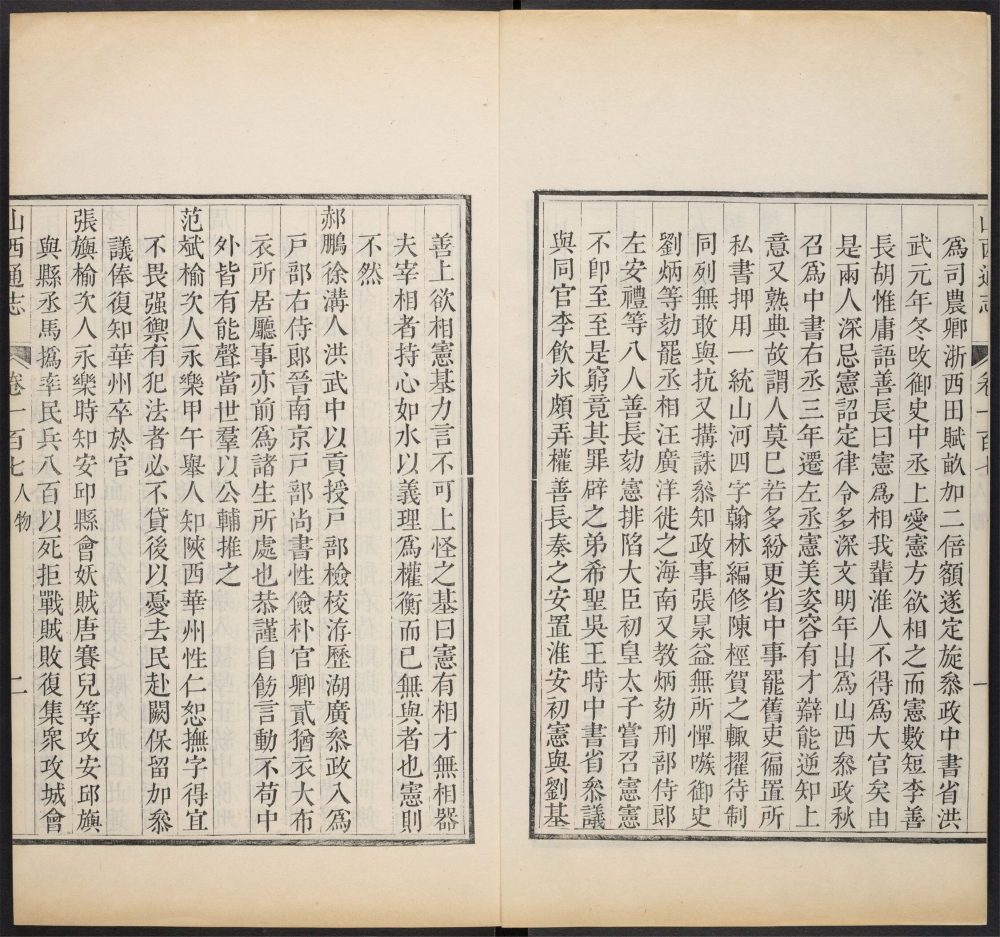 山西通志 卷一百七 一
爲司農卿浙西田賦畝加二倍額遂定旋叅政中書省洪
武元年冬攺御史中丞上愛憲方欲相之而憲數短李善
長胡惟庸語善長曰憲爲相我輩淮人不得爲大官矣由
是兩人深忌憲詔定律令多深文明年出爲山西叅政秋
召爲中書右丞三年遷左丞憲美姿容有才辯能逆知上
意又熟典故謂人莫巳若多紛更省中事罷舊吏徧置所
私書押用一統山河四字翰林編修陳桱賀之輙擢待制
同列無敢與抗又搆誅叅知政事張昶益無所憚嗾御史
劉炳等劾罷丞相汪廣洋徙之海南又教炳劾刑部侍郎
左安禮等八人善長劾憲排陷大臣初皇太子嘗召憲憲
不卽至至是窮竟其罪辟之弟希聖吳王時中書省叅議
與同官李飲氷頗弄權善長奏之安置淮安初憲與劉基
善上欲相憲基力言不可上怪之基曰憲有相才無相器
夫宰相者持心如水以義理爲權衡而已無與者也憲則
不然
郝鵬徐溝人洪武中以貢授戸部檢校洊歷湖廣叅政入爲
戸部右侍郎晉南京戸部尚書性儉朴官卿貳猶衣大布
衣所居廳事亦前爲諸生所處也恭謹自飭言動不苟中
外皆有能聲當世羣以公輔推之
范斌榆次人永樂甲午舉人知陜西華州性仁恕撫字得宜
不畏强禦有犯法者必不貸後以憂去民赴闕保留加叅
議俸復知華州卒於官
張旟榆次人永樂時知安邱縣會妖賊唐賽兒等攻安邱旟
與縣丞馬撝率民兵八百以死拒戰賊敗復集衆攻城會
山西通志 卷一百七 人物 二